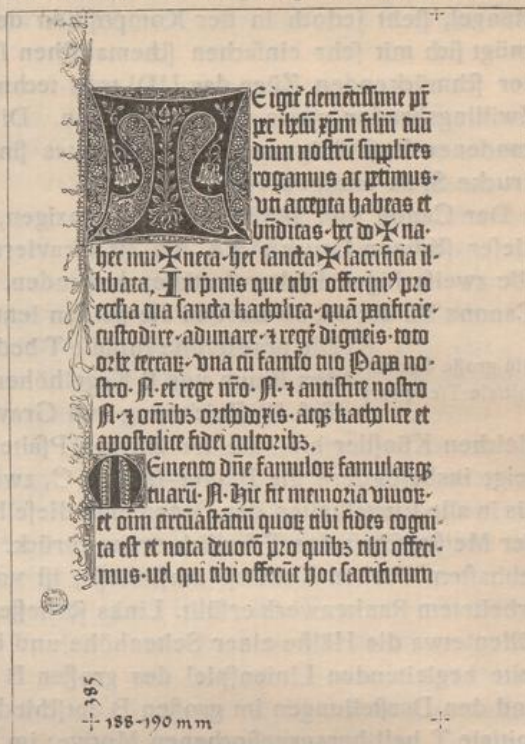 TE igit᷒ clemētissime pr̄
per ih̄esū xp̄m filiū tuū
dn̄m nostrū supplices
rogamus ac petimus·
vti accepta habeas et
bn̄dicas· hec do✠na·
hec mu✠nera· hec sancta✠sacrificia il-
libata, In p̄mis que tibi offerim⁹ pro
ecclīa tua sancta katholica· quā pacificare
custodire· adunare· ⁊ regē digneris· toto
orbe terraꝝ· vna cū famlo tuo Papa no-
stro· N· et rege nr̄o· N· ⁊ antistite nostro
N· ⁊ om̄ibꝫ orthodoxis· atqꝫ katholice et
apostolice fidei cultoribꝫ.
MEmento dn̄e famuloꝝ famularūqꝫ
tuarū· N· Hic fit memoria viuoꝝ·
et oīm circūastātiū quoꝝ tibi fides cogni-
ta est et nota deuocō pro quibꝫ tibi offeri-
mus· uel qui tibi offerūt hoc sacrificium
385
188-190 mm